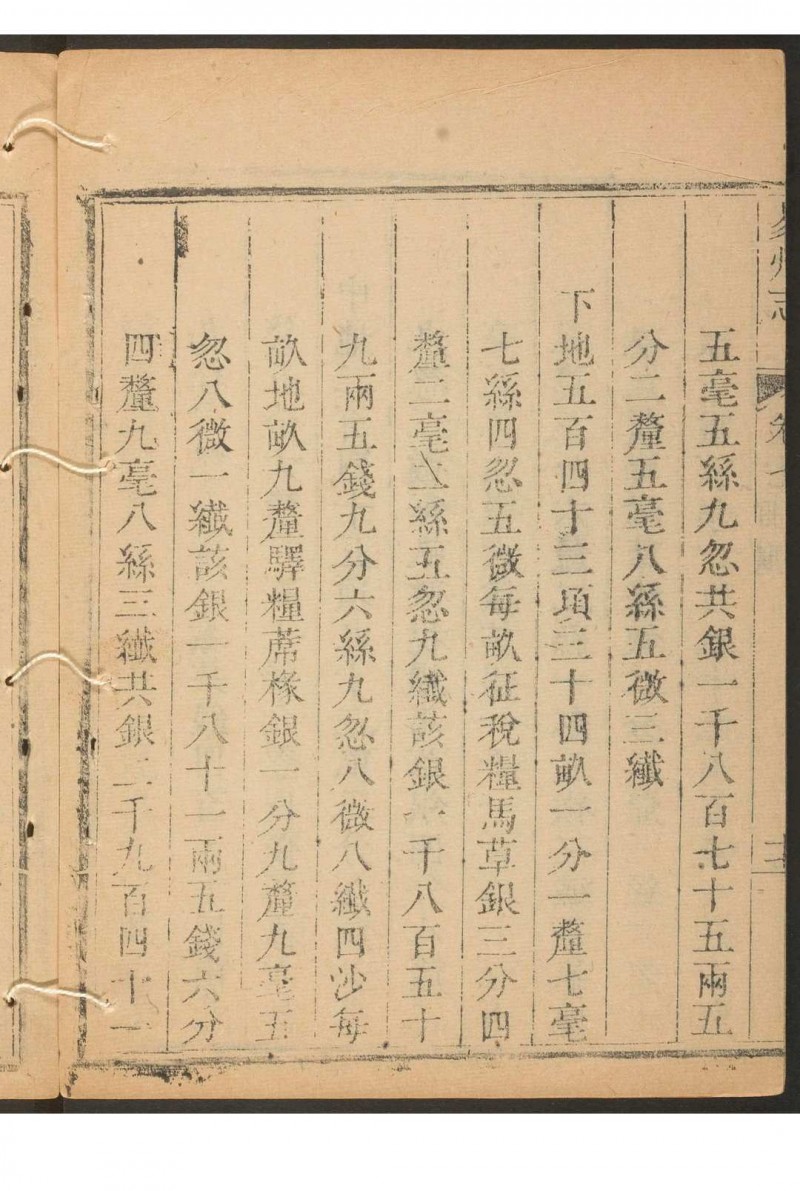 州志
五毫五絲九忽共銀一千八百七十五兩五
分二釐五毫八絲五微三纖
下地五百四十三項三十四畝一分一釐七毫
七絲四忽五微每畝征稅糧馬草銀三分四
釐二毫二絲五忽九纖該銀一千八百五十
九兩五錢九分六絲九忽八微八纖四沙每
畝地畝九釐驛糧蓆椽銀一分九釐九毫五
忽八微一纖該銀一千八十一兩五錢六分
四釐九毫八絲三纖共銀二千九百四十一